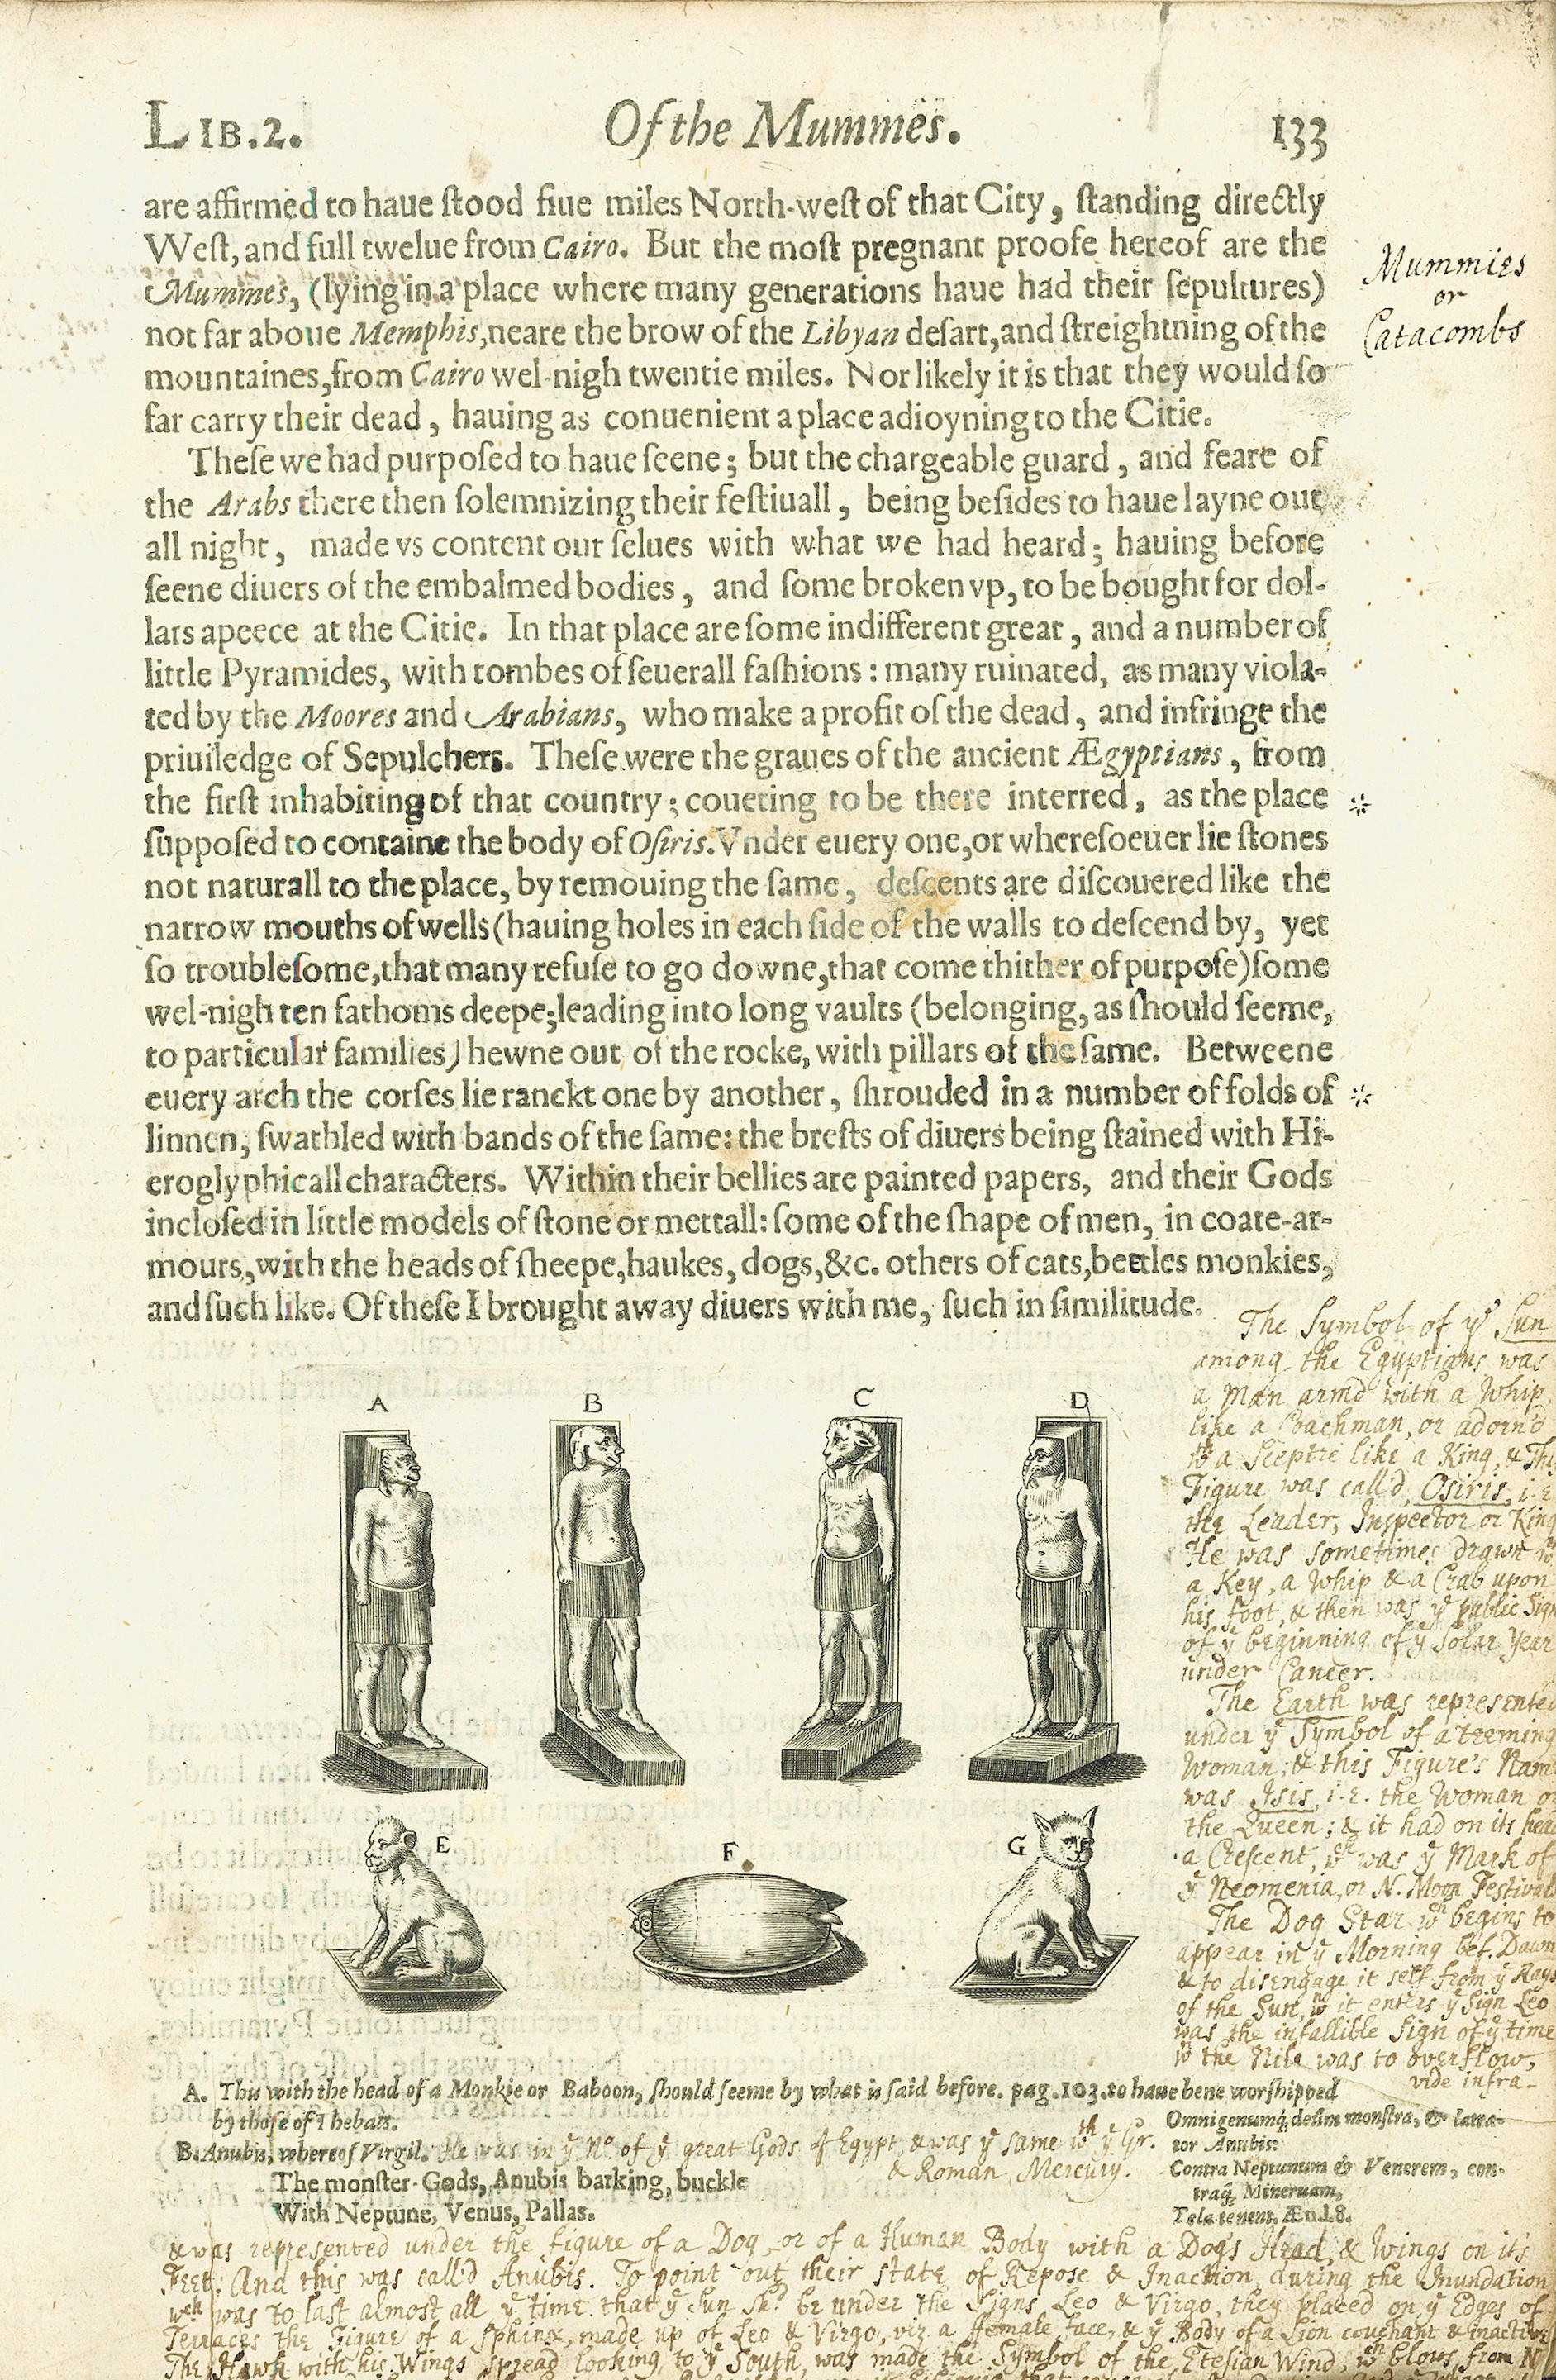 LIB.2. Of the Mummes. 133
are affirmed to haue ſtood fiue miles North-weſt of that City, ſtanding directly
Weſt, and full twelue from Cairo. But the moſt pregnant proofe hereof are the
Mummes, (lying in a place where many generations haue had their ſepultures)
not far aboue Memphis, neare the brow of the Libyan deſart, and ſtreightning of the
mountaines, from Cairo wel-nigh twentie miles. Nor likely it is that they would ſo
far carry their dead, hauing as conuenient a place adioyning to the Citie.
Mummies
or
Catacombs
Theſe we had purpoſed to haue ſeene; but the chargeable guard, and feare of
the Arabs there then ſolemnizing their feſtiuall, being beſides to haue layne out
all night, made vs content our ſelues with what we had heard; hauing before
ſeene diuers of the embalmed bodies, and ſome broken vp, to be bought for dol-
lars apeece at the Citie. In that place are ſome indifferent great, and a number of
little Pyramides, with tombes of ſeuerall faſhions: many ruinated, as many viola-
ted by the Moores and Arabians, who make a profit of the dead, and infringe the
priuiledge of Sepulchers. Theſe were the graues of the ancient Ægyptians, from
the firſt inhabiting of that country; coueting to be there interred, as the place *
ſuppoſed to containe the body of Oſiris. Vnder euery one, or whereſoeuer lie ſtones
not naturall to the place, by remouing the ſame, deſcents are diſcouered like the
narrow mouths of wells (hauing holes in each ſide of the walls to deſcend by, yet
ſo troubleſome, that many refuſe to go downe, that come thither of purpoſe) ſome
wel-nigh ten fathoms deepe; leading into long vaults (belonging, as ſhould ſeeme,
to particular families) hewne out of the rocke, with pillars of the ſame. Betweene
euery arch the corſes lie ranckt one by another, ſhrouded in a number of folds of *
linnen, ſwathled with bands of the ſame: the breſts of diuers being ſtained with Hi-
eroglyphicall characters. Within their bellies are painted papers, and their Gods
incloſed in little models of ſtone or mettall: ſome of the ſhape of men, in coate-ar-
mours, with the heads of ſheepe, haukes, dogs, &c. others of cats, beetles monkies,
and ſuch like. Of theſe I brought away diuers with me, ſuch in ſimilitude.
A B C D
E F G
The Symbol of yᵉ Sun
among the Egyptians was
a Man arm'd with a Whip
like a Coachman, or adorn'd
wᵗʰ a Sceptre like a King, & This
Figure was call'd, Osiris, i.e.
the Leader, Inspector or King
He was sometimes drawn wᵗʰ
a Key, a Whip & a Crab upon
his foot, & then was yᵉ public Sign
of yᵉ beginning of yᵉ Solar Year
under Cancer.
The Earth was represented
under yᵉ Symbol of a teeming
Woman; & this Figure's Name
was Isis, i.e. the Woman or
the Queen; & it had on its head
a Crescent, wᶜʰ was yᵉ Mark of
yᵉ Neomenia, or N. Moon Festival
The Dog Star wᶜʰ begins to
appear in yᵉ Morning bef. Dawn
& to disengage it self from yᵉ Rays
of the Sun, wⁿ it enters yᵉ Sign Leo
was the infallible Sign of yᵉ time
wⁿ the Nile was to overflow,
vide infra-
A. This with the head of a Monkie or Baboon, ſhould ſeeme by what is ſaid before. pag.103. to haue bene worſhipped
by thoſe of Thebais.
B. Anubis, whereof Virgil. He was in yᵉ Nº of yᵉ great Gods of Egypt, & was yᵉ same wᵗʰ yᵉ Gr.
& Roman Mercury.
The monſter-Gods, Anubis barking, buckle
With Neptune, Venus, Pallas.
Omnigenumq́; deûm monſtra, & latra-
tor Anubis:
Contra Neptunum & Venerem, con-
traq́; Mineruam,
Tela tenent. Æn.l.8.
& was represented under the figure of a Dog, or of a Human Body with a Dogs Head, & Wings on its
Feet: And this was call'd Anubis. To point out their state of Repose & Inaction during the Inundation
wᶜʰ was to last almost all yᵉ time that yᵉ Sun shᵈ be under the Signs Leo & Virgo, they placed on yᵉ Edges of
Terraces the Figure of a Sphinx, made up of Leo & Virgo, viz a female face, & yᵉ Body of a Lion couchant & inactive
The Hawk with his Wings spread looking to yᵉ South, was made the Symbol of the Etesian Wind, wᶜʰ blows from N